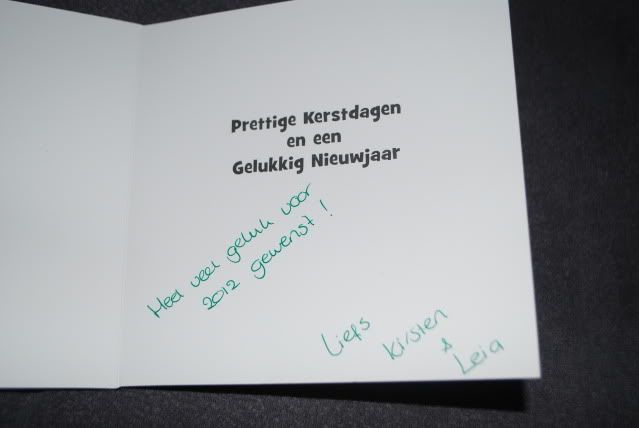 Prettige Kerstdagen
en een
Gelukkig Nieuwjaar
Heel veel geluk voor
2012 gewenst!
Liefs
Kirsten
&
Leia